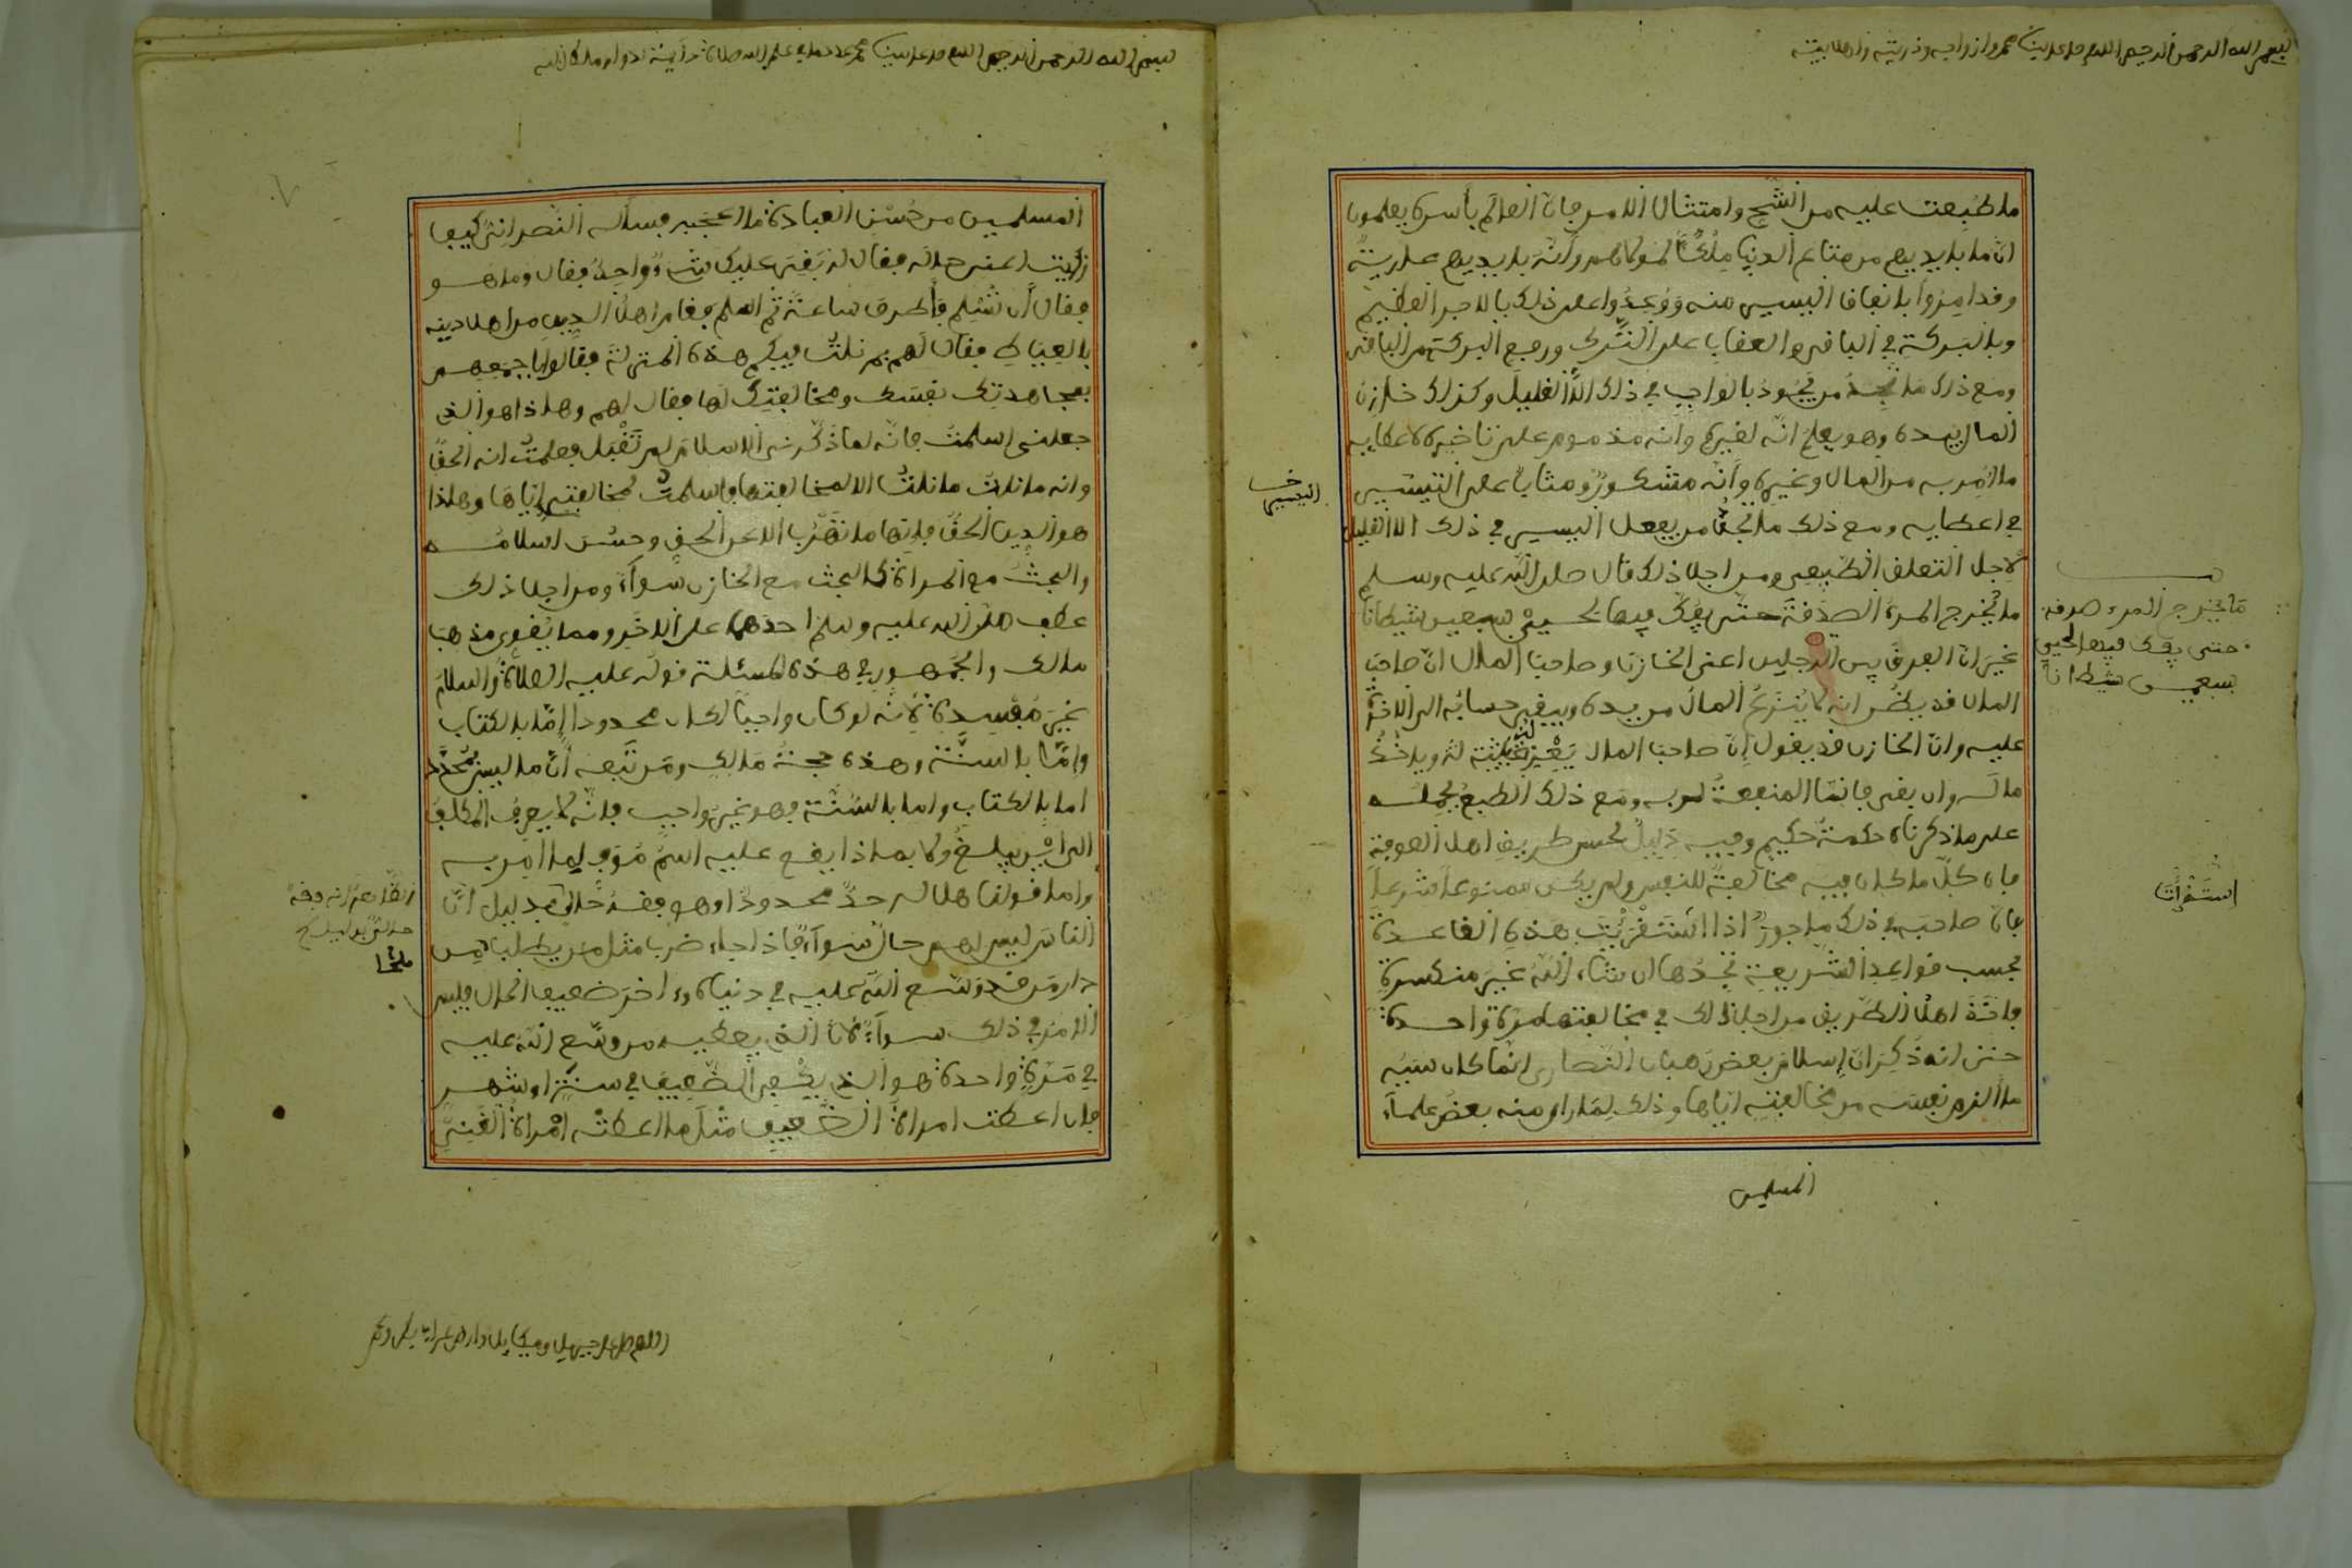 بسم الله الرحمن الرحيم اللهم صل على سيدنا محمد وازواجه وذريته واهل بيته
ما طبعت عليه من الشح وامتثال الامر فان العالم باسره يعلمون
ان ما بايديهم من متاع الدنيا ملكا لمولاهم وانه بايديهم عارية
وقد امروا بانفاق اليسير منه ووعدوا على ذلك بالاجر العظيم
وبالبركة في الباقي والعقاب على الترك ورفع البركة من الباقي
ومع ذلك ما تجد من يجود بالواجب في ذلك الا القليل وكذلك خازن
المال بيده وهو يعلم انه لغيره وانه مذموم على تاخيره لاعطايه
ما امر به من المال وغيره وانه مشكور ومثاب على التيسير
في اعطايه ومع ذلك ما تجد من يفعل اليسير في ذلك الا القليل
لاجل التعلق الطبيعي ومن اجل ذلك قال صلى الله عليه وسلم
ما يخرج المرء الصدقة حتى يفك فيها لحيي سبعين شيطانا
غير ان الفرق بين الرجلين اعني الخازن وصاحب المال ان صاحب
المال قد ينظر انه لا ينزع المال من يده ويبقى حسابه الى الاخرة
عليه وان الخازن قد يقول ان صاحب المال له ويا خذ
ماله وان بقي فانما المنفعة لربه ومع ذلك الطبع يحمله
على ما ذكرناه حكمة حكيم وفيه دليل لحسن طريق اهل الصوفة
فان كل ما كان فيه مخالفة للنفس ولم يكن ممنوعا شرعا
فان صاحبه في ذلك ماجور اذا استقريت هذه القاعدة
بحسب قواعد الشريعة تجدها ان شاء الله غير منكسرة
فاخذ اهل الطريق من اجل ذلك في مخالفتها مرة واحدة
حتى انه ذكر ان اسلام بعض رهبان النصارى انما كان سببه
ما الزم نفسه من مخالفته اياها وذلك لما راى منه بعض علماء
المسلمين
ما يخرج المرء صدقة
حتى يفك فيها لحيي
سبعين شيطانا
بسم الله الرحمن الرحيم اللهم صل على سيدنا محمد
المسلمين من حسن العبادة ما اعجبه فساله النصراني كيف
رايت اعني حاله فقال له بقي عليك شيء واحد فقال وما هو
فقال ان تسلم فاطرق ساعة ثم اسلم فقام اهل الدير من اهل دينه
بالعياط فقال لهم بم نلت فيكم هذه المنزلة فقالوا باجمعهم
بمجاهدتك نفسك ومخالفتك لها فقال لهم وهذا هو الذي
جعلني اسلمت فانه لما ذكر لي الاسلام لم تقبل فعلمت انه الحق
وانه ما نلت ما نلت الا لمخالفتها فاسلمت لمخالفتي اياها وهذا
هو الدين الحق فانها ما تهرب الا عن الحق وحسن اسلامه
والبحث مع المراة كالبحث مع الخازن سواء ومن اجل ذلك
عطف صلى الله عليه وسلم احدهما على الاخر ومما يقوي مذهب
مالك والجمهور في هذه المسئلة قوله عليه الصلاة والسلام
غير مفسدة لانه لو كان واجبا لكان محدودا اما بالكتاب
واما بالسنة وهذه حجة مالك ومن تبعه ان ما ليس محدد
اما بالكتاب واما بالسنة فهو غير واجب فانه لا يعرف المكلف
الى اين يبلغ ولا بماذا يقع عليه اسم موف لما امر به
واما قولنا هل له حد محدود او هو بقدر حال بدليل ان
الناس ليس لهم حال سواء فاذا جاء ضربا مثل من يطلب من
دار من قد وسع الله عليه في دنياه واخر ضعيف الحال فليس
الامر في ذلك سواء لان الذي يعطيه من وسع الله عليه
في مرة واحدة هو الذي يكفي الضعيف في سنة او شهر
فان اعطت امراة الضعيف مثل ما اعطته امراة الغني
اللهم صل على جبريل وميكايل